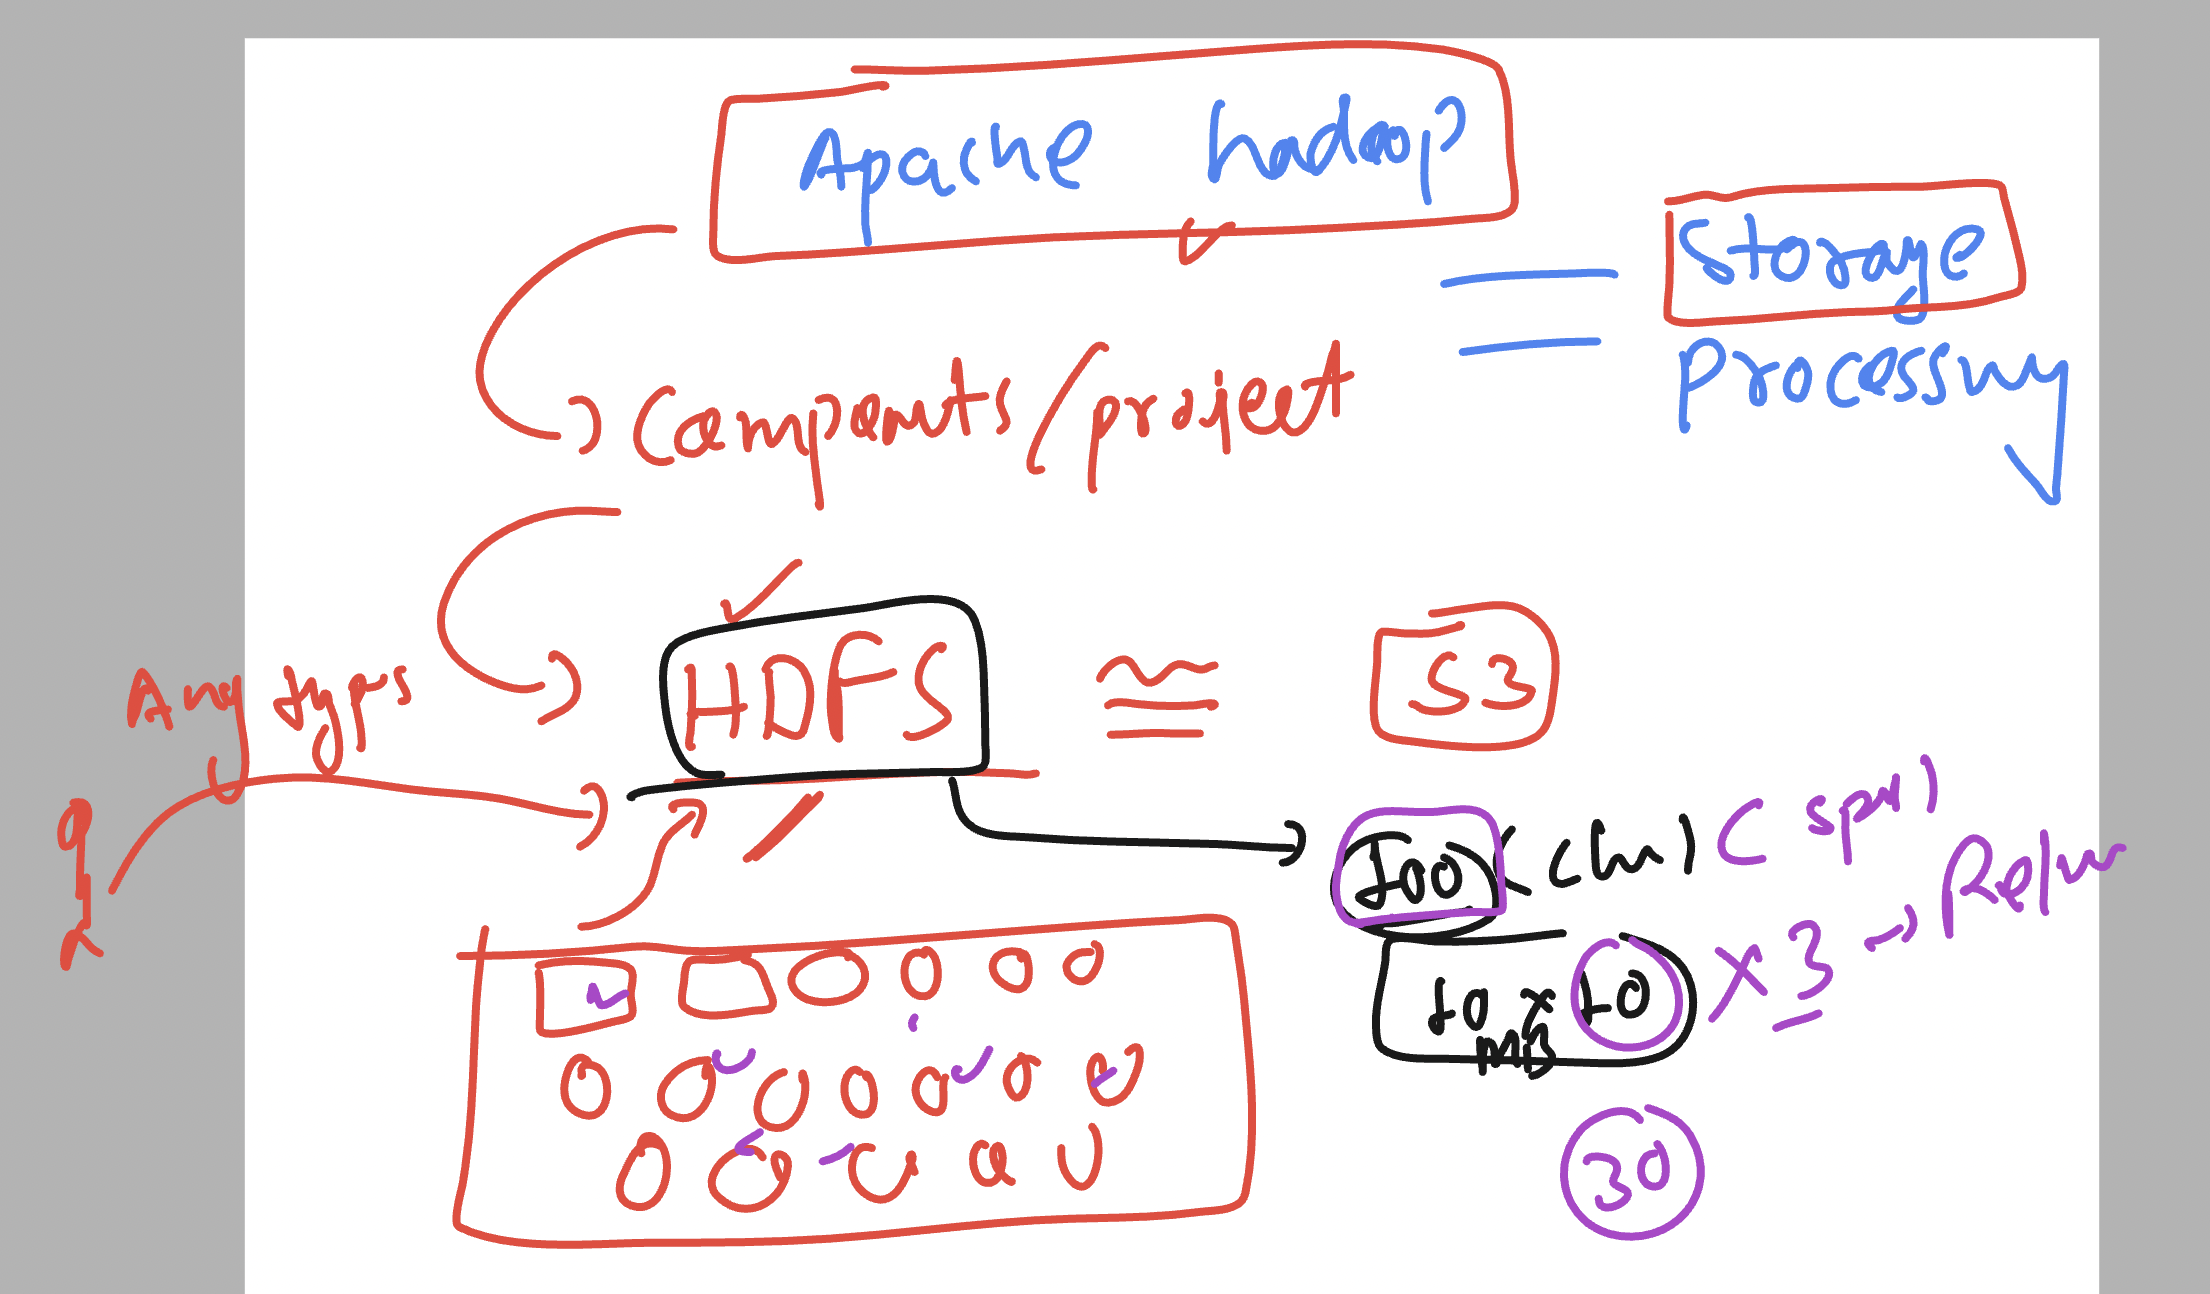 Apache hadoop
Storage
Processing
Components/project
HDFS
S3
Any types
100 (
x 3 →
10 x 10
MB
30